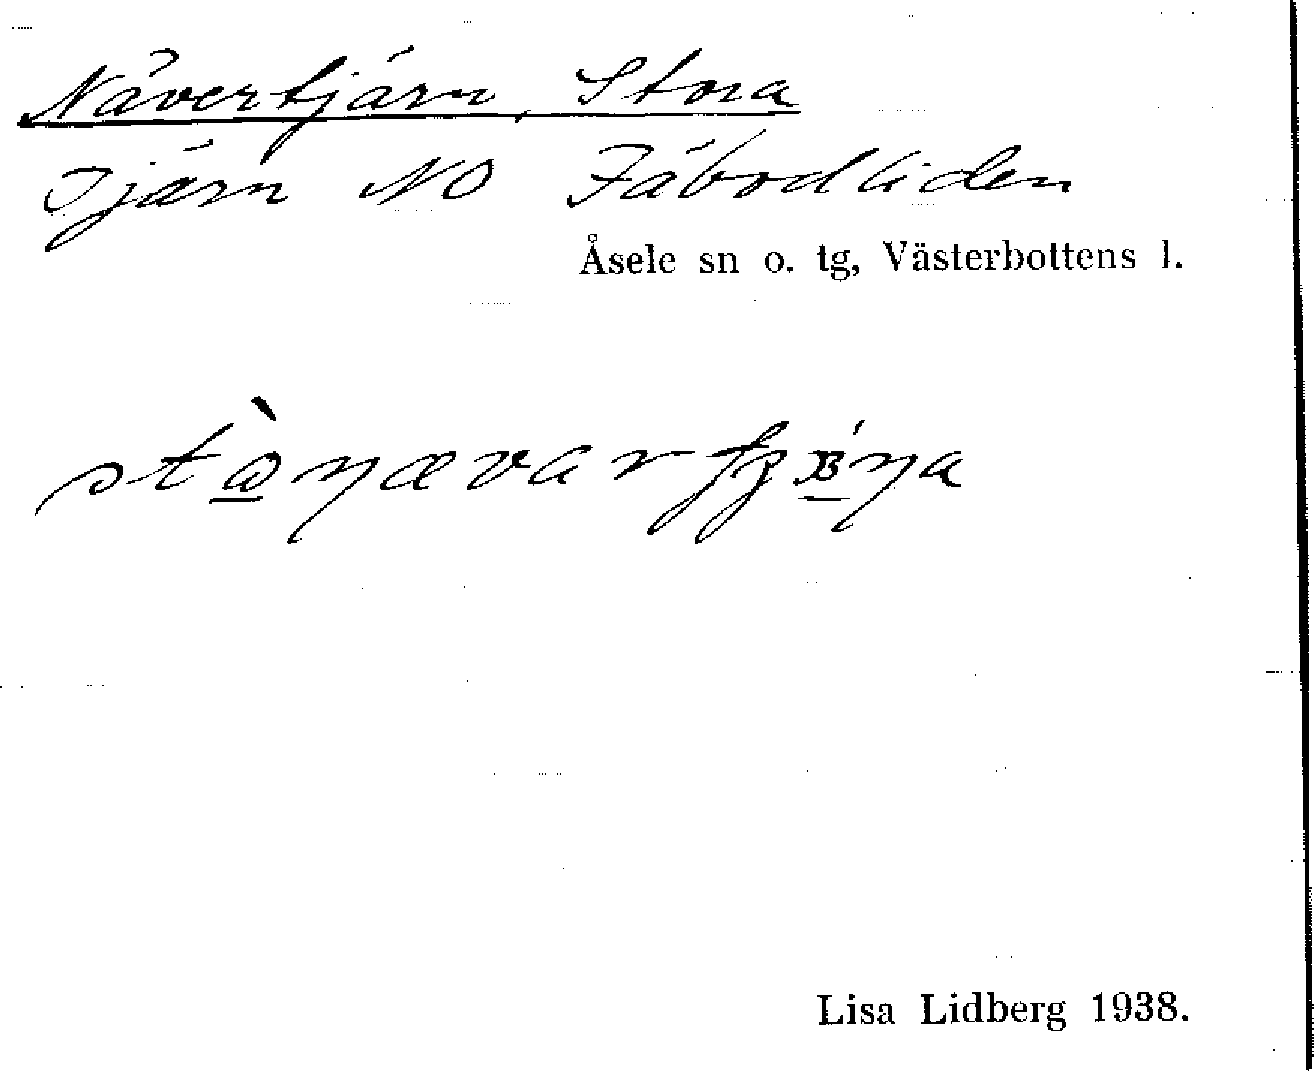 Nävertjärn, Stora
Tjärn NO Fäbodliden
Åsele sn o. tg, Västerbottens l.
Lisa Lidberg 1938.